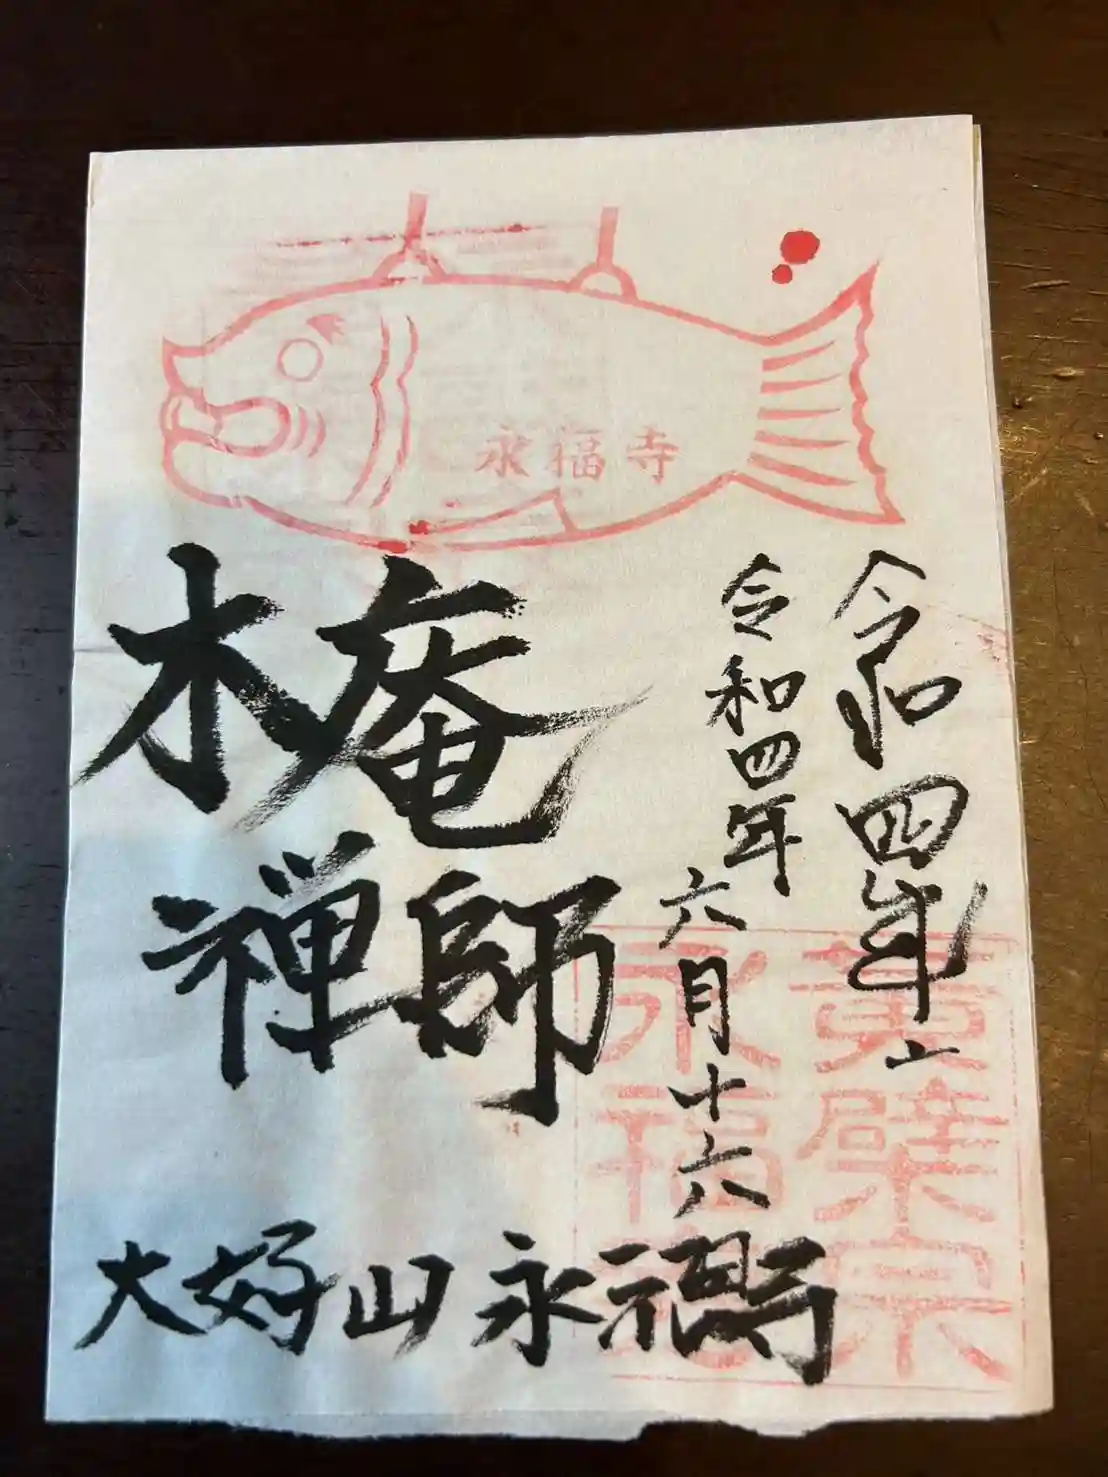 永福寺
木庵
禅師
令和四年六月十六
令和四年六
大好山永福寺
黄檗宗
永福寺